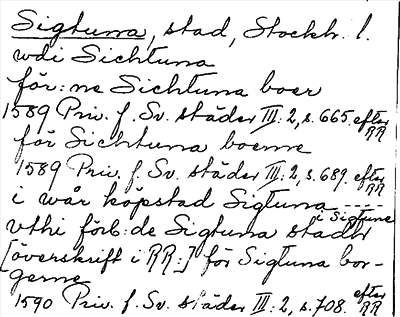 Sigtuna, stad, Stockh. l.
vdi Sichtuna
för:ne Sichtuna boer
1589 Priv. f. Sv. städer III:2, s. 665. efter RR
för Sichtuna boerne
1589 Priv. f. Sv. städer III:2, s. 689. efter RR
i wår köpstad Sigtuna ----- i Sigtune
vthi förb:de Sigtuna stadh
[överskrift i RR:] för Sigtuna bor-
gerne
1590 Priv. f. Sv. städer III:2, s. 708. efter RR